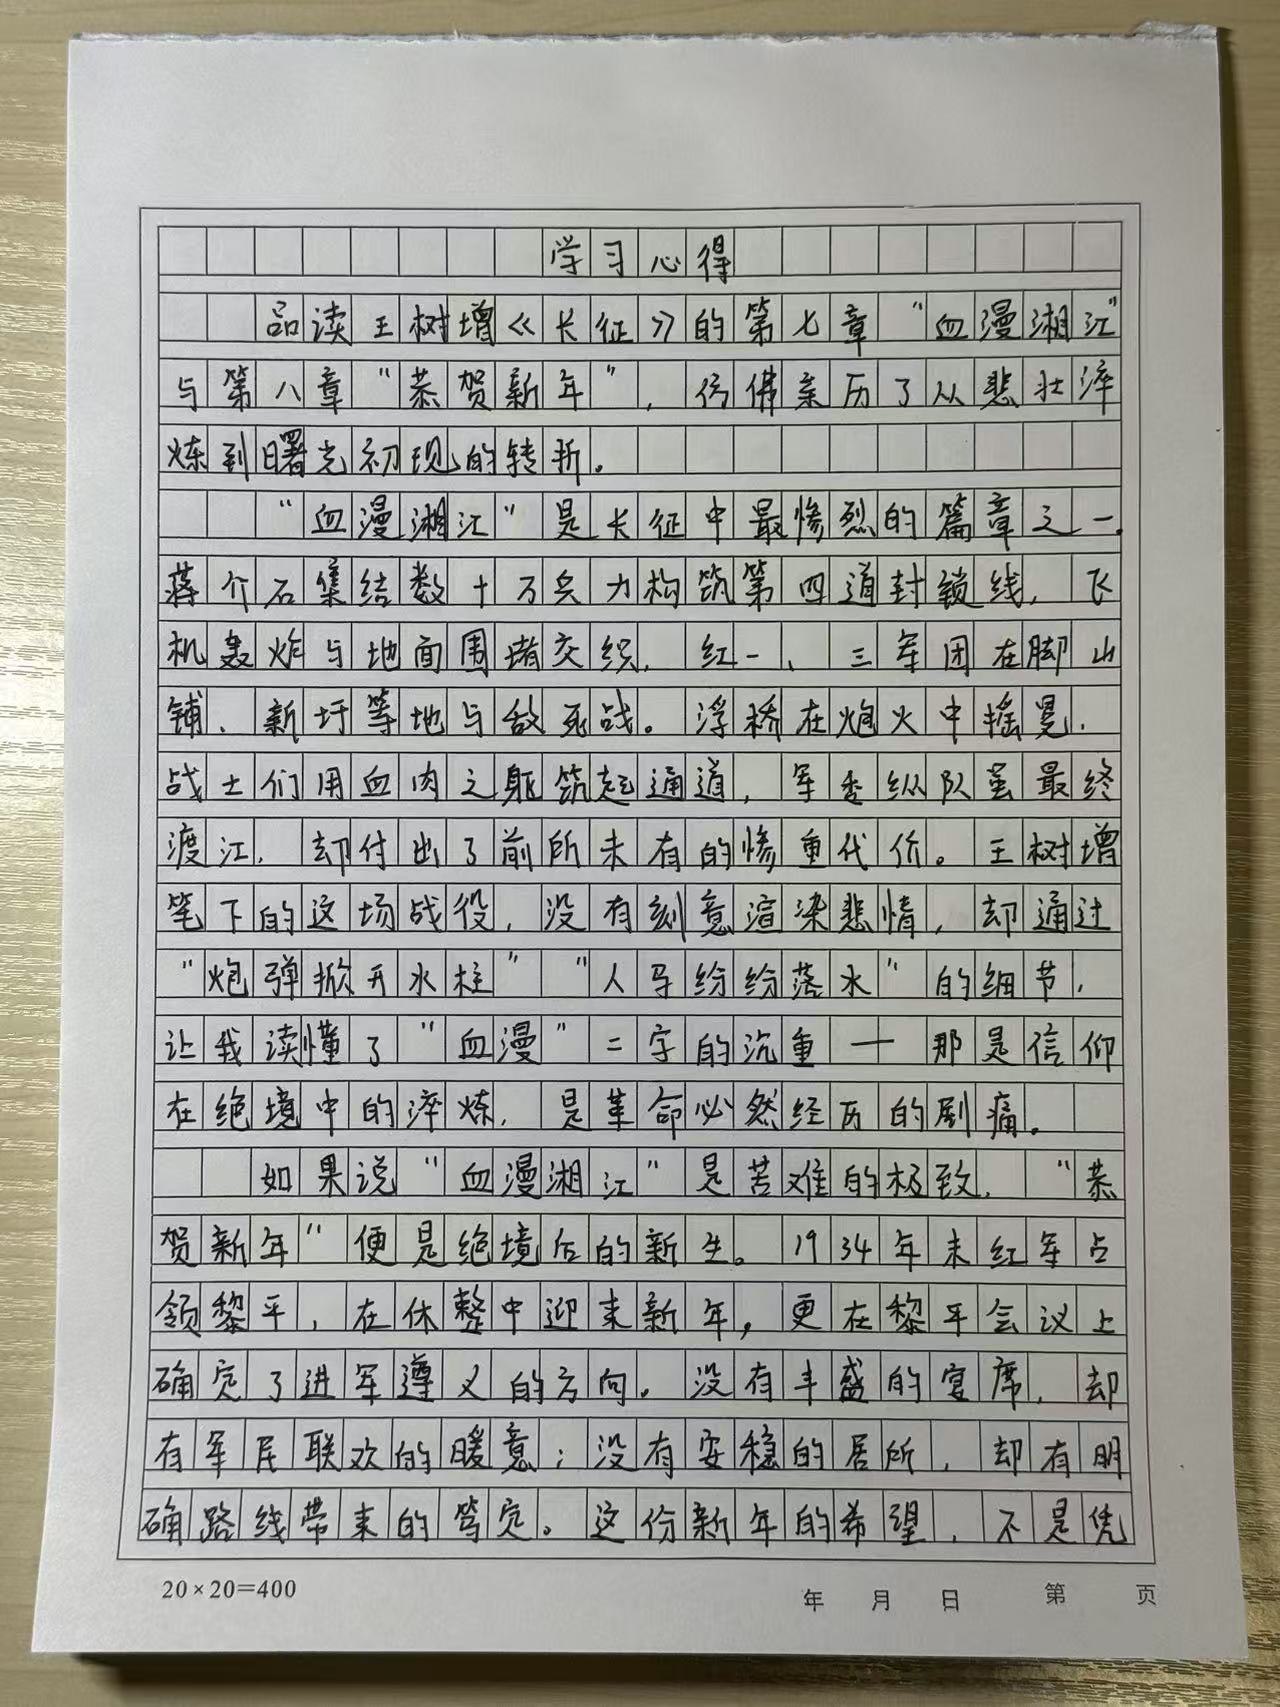 学习心得
品读王树增《长征》的第七章“血漫湘江”
与第八章“恭贺新年”，仿佛亲历了从悲壮淬
炼到曙光初现的转折。
“血漫湘江”是长征中最惨烈的篇章之一。
蒋介石集结数十万兵力构筑第四道封锁线，飞
机轰炸与地面围堵交织，红一、三军团在脚山
铺、新圩等地与敌死战。浮桥在炮火中摇晃，
战士们用血肉之躯筑起通道，军委纵队虽最终
渡江，却付出了前所未有的惨重代价。王树增
笔下的这场战役，没有刻意渲染悲情，却通过
“炮弹掀开水柱”“人马纷纷落水”的细节，
让我读懂了“血漫”二字的沉重——那是信仰
在绝境中的淬炼，是革命必然经历的剧痛。
如果说“血漫湘江”是苦难的极致，“恭
贺新年”便是绝境后的新生。1934年末红军占
领黎平，在休整中迎来新年，更在黎平会议上
确定了进军遵义的方向。没有丰盛的宴席，却
有军民联欢的暖意；没有安稳的居所，却有明
确路线带来的笃定。这份新年的希望，不是凭
20×20=400
年 月 日 第 页